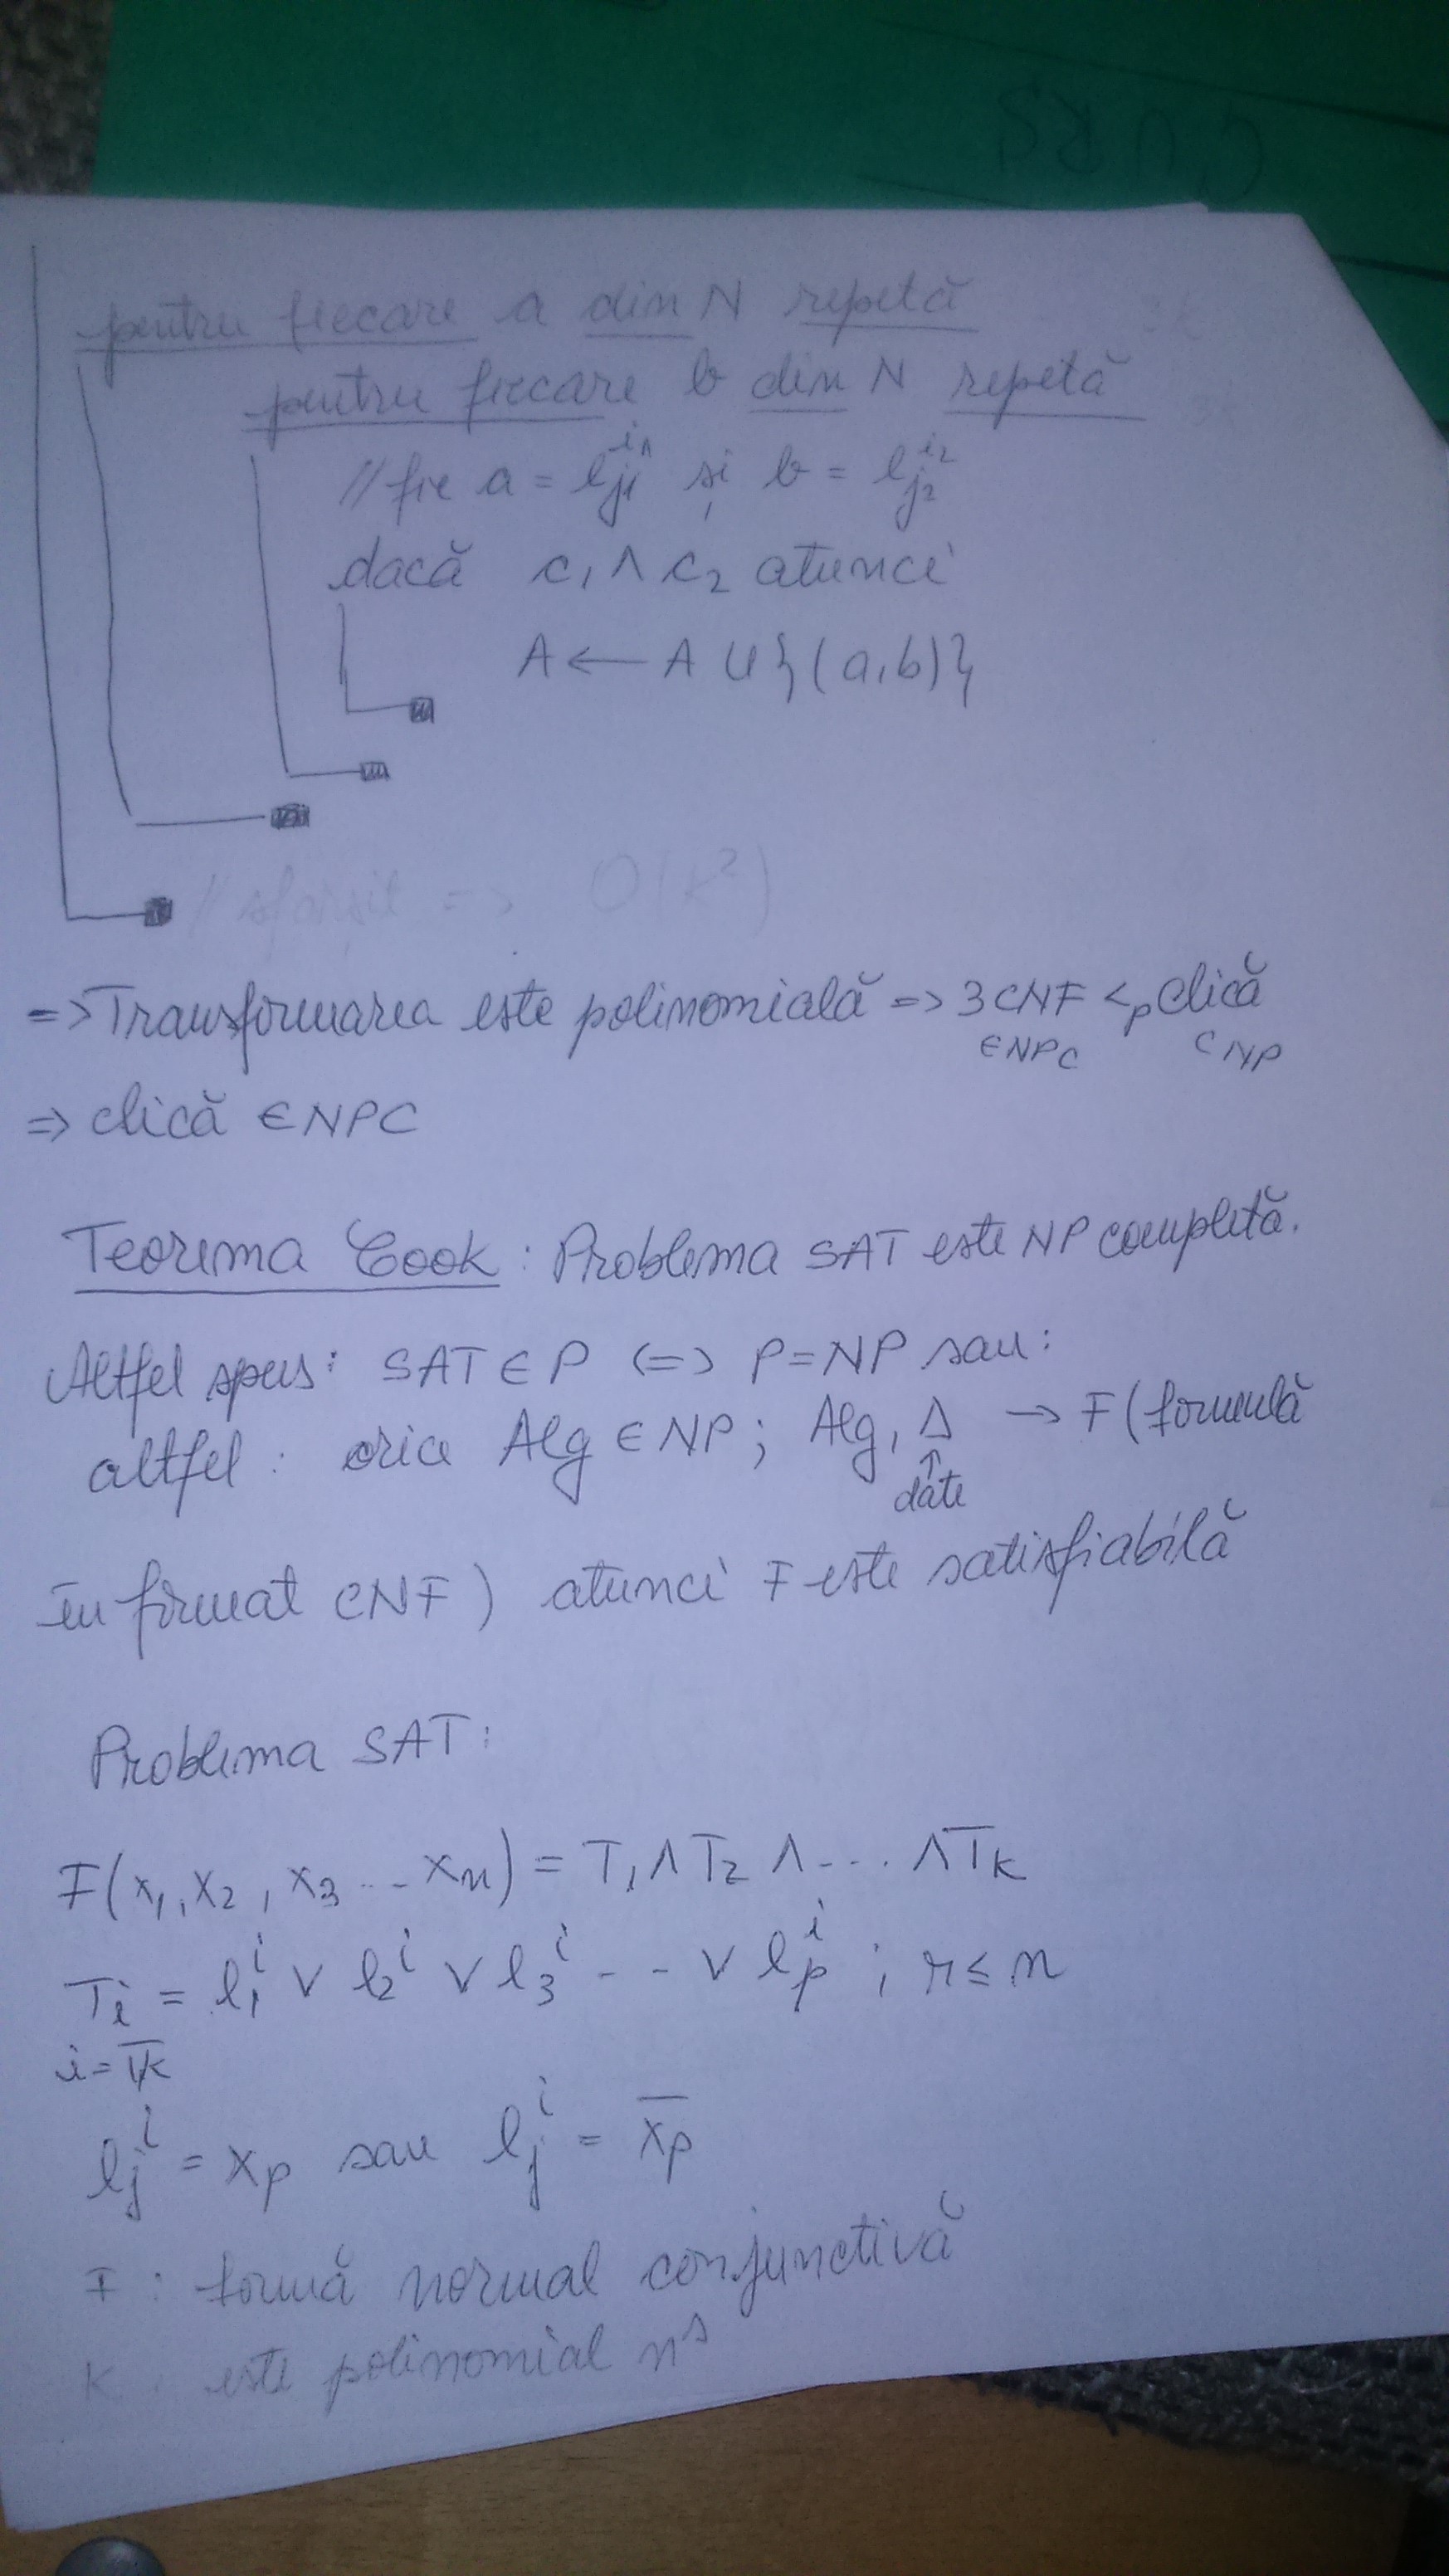 CURS
pentru fiecare a din N repetă
pentru fiecare b din N repetă
// fie a = l_{j1}^{i1} și b = l_{j2}^{i2}
dacă c₁ ∧ c₂ atunci
A ← A ∪ {(a,b)}
// sfârșit => O(k²)
=> Transformarea este polinomială => 3CNF <ₚ Clică
∈NPC ⊂ NP
=> clică ∈ NPC
Teorema Cook : Problema SAT este NP completă.
Altfel spus: SAT ∈ P <=> P=NP sau:
altfel : orice Alg ∈ NP; Alg, Δ → F (formulă
↑
date
în format CNF) atunci F este satisfiabilă
Problema SAT:
F(x₁, x₂, x₃ ... xₙ) = T₁ ∧ T₂ ∧ ... ∧ Tₖ
Tᵢ = l₁ⁱ ∨ l₂ⁱ ∨ l₃ⁱ ... ∨ lₚⁱ ; r ≤ n
i = 1,k̅
lⱼⁱ = xₚ sau lⱼⁱ = x̅ₚ
F : formă normal conjunctivă
K : este polinomial nˢ